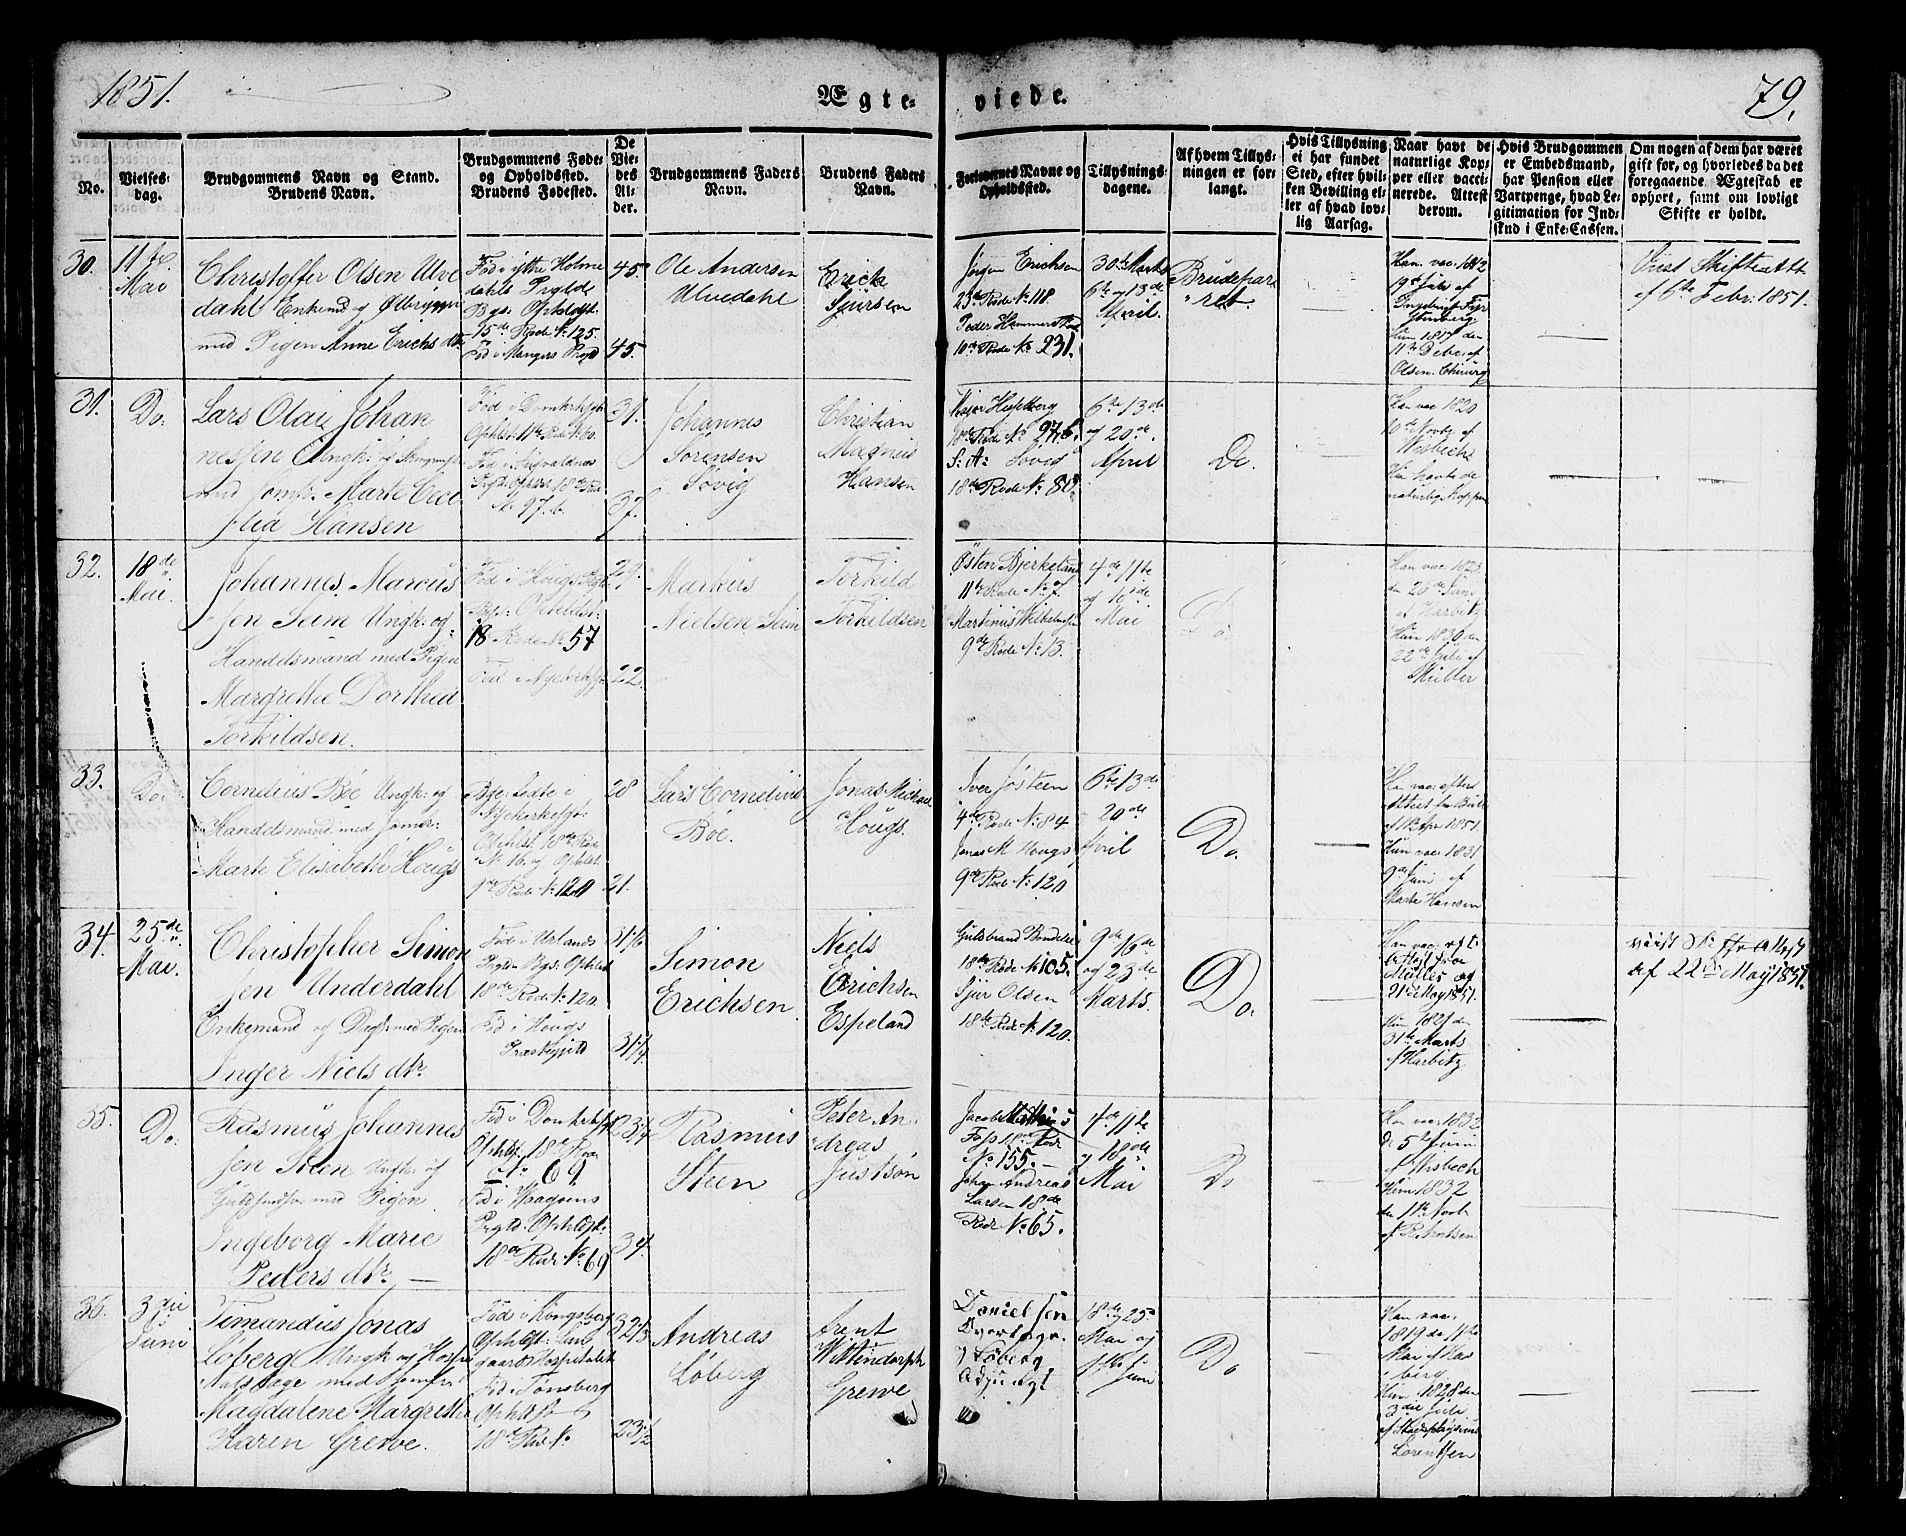 1851.
Ægte-
viede.
79.
No.
Vielses-
dag.
Brudgommens Navn og Stand.
Brudens Navn.
Brudgommens Føde-
og Opholdssted.
Brudens Fødested.
De
Vie-
des
Al-
der.
Brudgommens Faders
Navn.
Brudens Faders
Navn.
Forlovernes Navne og
Opholdssted.
Tillysnings-
dagene.
Af hvem Tillys-
ningen er for-
langt.
Hvis Tillysning
ei har fundet
Sted, efter hvil-
ken Bevilling el-
ler af hvad lov-
lig Aarsag.
Naar havt de
naturlige Kop-
per eller vacci-
nerede. Attest
derom.
Hvis Brudgommen
er Embedsmand,
har Pension eller
Vartpenge, hvad Le-
gitimation for Ind-
skud i Enke-Cassen.
Om nogen af dem har været
gift før, og hvorledes da det
foregaaende Ægteskab er
ophørt, samt om lovligt
Skifte er holdt.
30.
11te
Mai
Christoffer Olsen Ulve
dahl Enkemd og Ølbrygger
med Pigen Anne Erichs dtr
Fød i ytre Holme
dahls Prgld
Bgs. Opholdst.
15de Rode No 125.
Fød i Mangers Prgld
45.
45.
Ole Andersen
Ulvedahl
Erick
Siursen
Jørgen Erichsen
23de Rode No 118
Peder Hammerstad
10de Rode No 231.
30te Marts
6te og 13de
April.
Brudepar
ret
Han vac: 1812
19de Juli af
Hun 1817 den
11te Debr: af
Olsen. Chirurg
Viist Skifteatt
af 6te Febr: 1851.
31.
Do:
Lars Olai Johan
nessen Ungk: og
med Jomfr. Marte Cece
lia Hansen
Fød i Domkirkesg.
Opholst. 11te Rode No 60.
Prgld. Opholst. 18de Rode
No 97. b.
31.
37.
Johannes
Sørensen
Søvig
Christian
Magnus
Hansen
18de Rode No 97. b.
S: A: Søvig
18de Rode No 80.
6te 13de
og 20de
April
Do.
Han vac 1820
10de Novbr af
Wisbech
Hun havte de
naturlige Kopper
32.
18de
Mai.
Johannes Marcus
sen Seim Ungk: og
Handelsmand med Pigen
Margrethe Dorthea
Torkildsen.
Fød i Hougs Prgld
Bgs: Opholdst:
18 Rode No 57
Fød i Nykirkesg.
29.
22.
Markus
Nielsen Seim
Torkild
Torkildsen
Østen Bjerkeland
11te Rode No
Martinus Wilhelmsen
9de Rode No 13.
4de 11te
og
Mai
Do.
Han vac: 1823
den 26de Juni
af Harbitz
Hun 1830 den
22de Juli af
Müller
33.
Do:
Cornelius Böe Ungk: og
Handelsmand med Jomfr:
Marte Elisabethe Hougs
Nykirkesg:
Opholst. 18de Rode
No 16. og Opholst.
9de Rode No 120
28
21.
Lars Cornelius
Böe.
Jonas Michael
Hougs.
Iver Jösteen
4de Rode No 84
Jonas M. Hougs
9de Rode No 120
6te 13de
20de
April
Do.
Han vac: efter
Attest fra Bull
af 11te Apr: 1851.
Hun vac: 1831
9de Juni af
Marta Hansen
34.
25de
Mai.
Christopher Simon
sen Underdahl
Enkemand og med Pigen
Inger Niels dtr.
Fød i Urlands
Prgld. Bgs: Opholst
18de Rode No 120.
Fød i Hougs
Præstegjeld
31 1/6
31 1/4
Simon
Erichsen
Niels
Erichsen
Espeland
Guldbrand Bendixen
18de Rode No 105.
Sjur Olsen
18de Rode No 120.
9de 16de
og 23de
Marts.
Do.
Han vac: eft:
Attest fra
Müller og
21de May 1851.
Hun 1821 den
31te Marts
af Harbitz
viist Skifteattest
af 22de May 1851.
35.
Do.
Rasmus Johannes
sen Steen Ungk: og
Guldsmedsv. med Pigen
Ingeborg Marie
Peders dtr.
Fød i Domkirksg
Opholst. 18de Rode
No 69.
Fød i
Prgld. Opholdst:
18de Rode No 69
23 1/4
34.
Rasmus
Steen
Peter An-
dreas
Justsøn
Jacob
Foss 18de Rode
No 155.
Johan Andreas
Larsen 18de
Rode No 65.
4de 11te
og 18de
Mai
Do
Han vac: 1832
d: 5te Juni
af Wisbech
Hun 1832
den 11te Novb:
36.
3die
Juni
Timandus Jonas
Löberg Ungk og Hospi
med Jomfr.
Magdalene Margrethe
Karen Grewe.
Fød i Kongsberg
Opholst: Lun
gaards Hospitalet
Fød i Tønsberg
Opholst
18de Rode No
32 1/3
23 1/2
Andreas
Löberg
Arent
Wittendorph
Grewe
Danielsen
Overlæge.
Löberg
Adjungt
18de 25
Mai og
1ste Juni
Do
Han vac.
1819 den 11te
Mai af
Hun 1828 den
3die Juli
Lorentzen